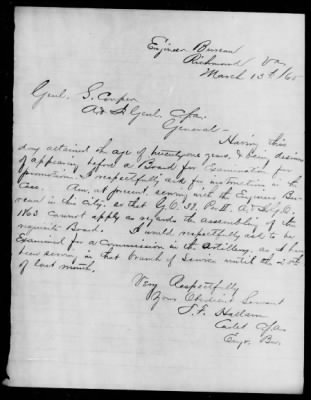 Engineer Bureau
Richmond Va,
March 13th/65
Genl. S. Cooper
A & I Genl. C.S.a.
General –
Having this
day attained the age of twenty one years, & being desirous
of appearing before a Board for examination for
promotion, I respectfully ask for instructions in the
case. Am, at present, serving with the Engineer Bu-
reau in this City, so that G.O. A & I.G.O.
1863 cannot apply as regards the assembling of the
requisite Board. I would respectfully ask to be
Examined for a commission in the Artillery, as I have
been serving in that branch of service until the 20th
of last month.
Very Respectfully
Your Obedient Servant
Cadet C.S.A.
Engr. Bu.